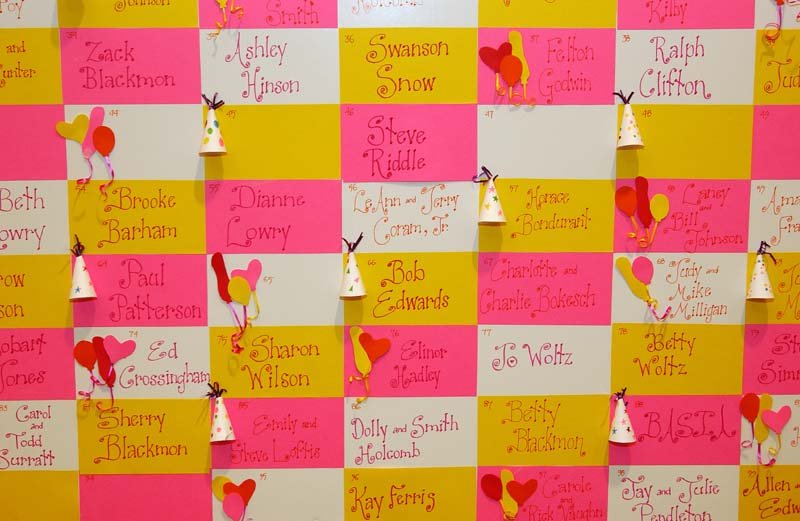 Johnson
Smith
Holcomb
Kilby
34
Zack
Blackmon
Ashley
Hinson
36
Swanson
Snow
37
Felton
Godwin
38
Ralph
Clifton
and
44
45
46
Steve
Riddle
47
48
49
Beth
Lowry
54
Brooke
Barham
55
Dianne
Lowry
56
LeAnn and Jerry
Coram, Jr.
57
Horace
Bondurant
58
Laney
and
Bill
Johnson
59
64
Paul
Patterson
65
66
Bob
Edwards
67
Charlotte and
Charlie Bokesch
68
Judy and
Mike
Milligan
Hobart
Jones
74
Ed
Crossingham
75
Sharon
Wilson
76
Elinor
Hadley
77
Jo Woltz
78
Betty
Woltz
79
83
Carol
and
Todd
Surratt
84
Sherry
Blackmon
85
Emily and
Steve Loftis
86
Dolly and Smith
Holcomb
87
Betty
Blackmon
88
BASIA
94
95
96
Kay Ferris
97
Carole
and
Rick Vaughn
98
Jay and Julie
Pendleton
Allen
and